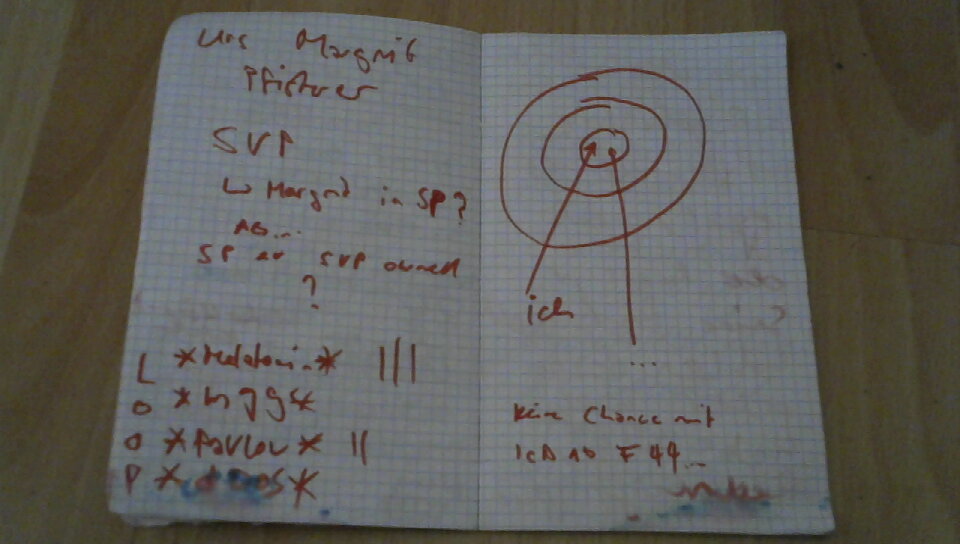 Urs Margrit
Pfisterer
SVP
↳ Margrit in SP?
SP SVP owned
?
L *Melatonin* |||
O
O *Pavlov* ||
P
ich
...
Keine Chance mit
ICD 10 F44...